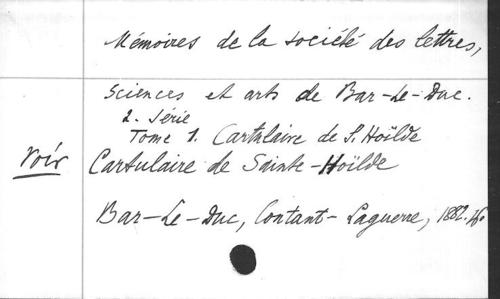 Mémoires de la société des lettres,
Sciences et arts de Bar-Le-Duc.
2. Série
Tome 1. Cartulaire de S. Hoïlde
voir Cartulaire de Sainte-Hoïlde
Bar-Le-Duc, Contant-Laguerre, 1882.